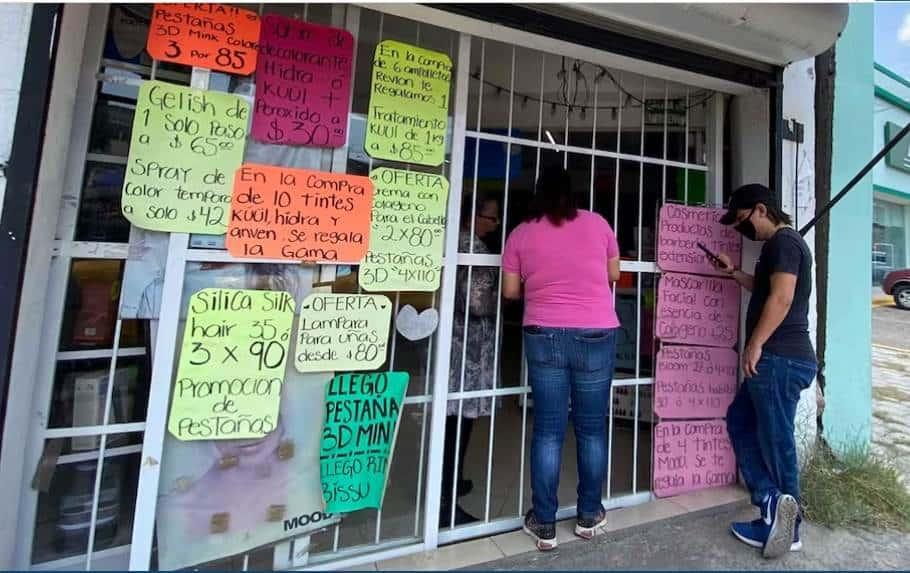 OFERTA!!
Pestañas
3D Mink Colores
3 Por 85
decolorante
Hidra ó
KUUL +
Peroxido a
$30.00
En la compra
de 6 ampolletas
Revlon te
Regalamos 1
Tratamiento
KUUL de 1kg
a $85.00
Gelish de
1 solo Paso
a $65.00
SPray de
Color temporal
a solo $42
En la ComPra
de 10 tintes
KUUL, hidra y
anven, se regala
la Gama
OFERTA
Crema con
colageno
Para el Cabello
2x80.00
Pestañas
3D $4x110.00
Silica Silk
hair 35 ó
3 x 90
Promocion
de
Pestañas
OFERTA
LamPara
Para uñas
desde $80.00
LLEGO
PESTAÑA
3D MINK
LLEGO RIM
BISSU
MOOD
Productos de
barberia
extension
Mascarilla
Facial con
esencia de
Colageno $25
Pestañas
Bloom 25 ó 4x
Pestañas
30 ó 4x110
En la Compra
de 4 tintes
Mood, se te
regala la Gama